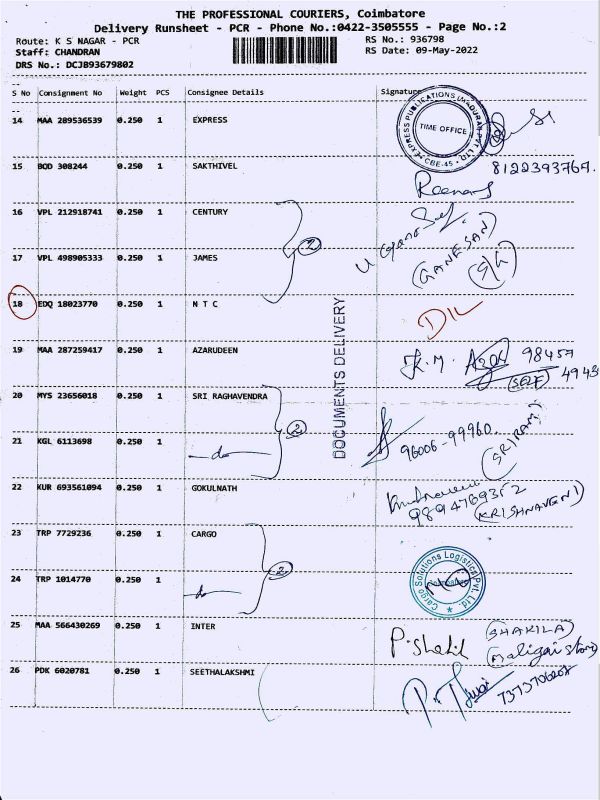 THE PROFESSIONAL COURIERS, Coimbatore
Delivery Runsheet - PCR - Phone No.:0422-3505555 - Page No.:2
Route: K S NAGAR - PCR RS No.: 936798
Staff: CHANDRAN RS Date: 09-May-2022
DRS No.: DCJB93679802
S No Consignment No Weight PCS Consignee Details Signature
14 MAA 289536539 0.250 1 EXPRESS
EXPRESS PUBLICATIONS (MADURAI) PVT. LTD. CBE-45
TIME OFFICE
15 BOD 308244 0.250 1 SAKTHIVEL 8122393767.
16 VPL 212918741 0.250 1 CENTURY
2 (GANESAN)
17 VPL 498905333 0.250 1 JAMES S/G
18 EDQ 18023770 0.250 1 N T C D/L
DOCUMENTS DELIVERY
19 MAA 287259417 0.250 1 AZARUDEEN K.M. Azar 98457
(SELF) 4943
20 MYS 23656018 0.250 1 SRI RAGHAVENDRA
2 96006-99960. (SRIRAM)
21 KGL 6113698 0.250 1 -do-
22 KUR 693561094 0.250 1 GOKULNATH
9894769352 (KRISHNAVENI)
23 TRP 7729236 0.250 1 CARGO
2 Cargo Solutions Logistics Pvt. Ltd.
24 TRP 1014770 0.250 1 -do-
25 MAA 566430269 0.250 1 INTER P. Shakil (SHAKILA)
(Maligai store)
26 PDK 6020781 0.250 1 SEETHALAKSHMI